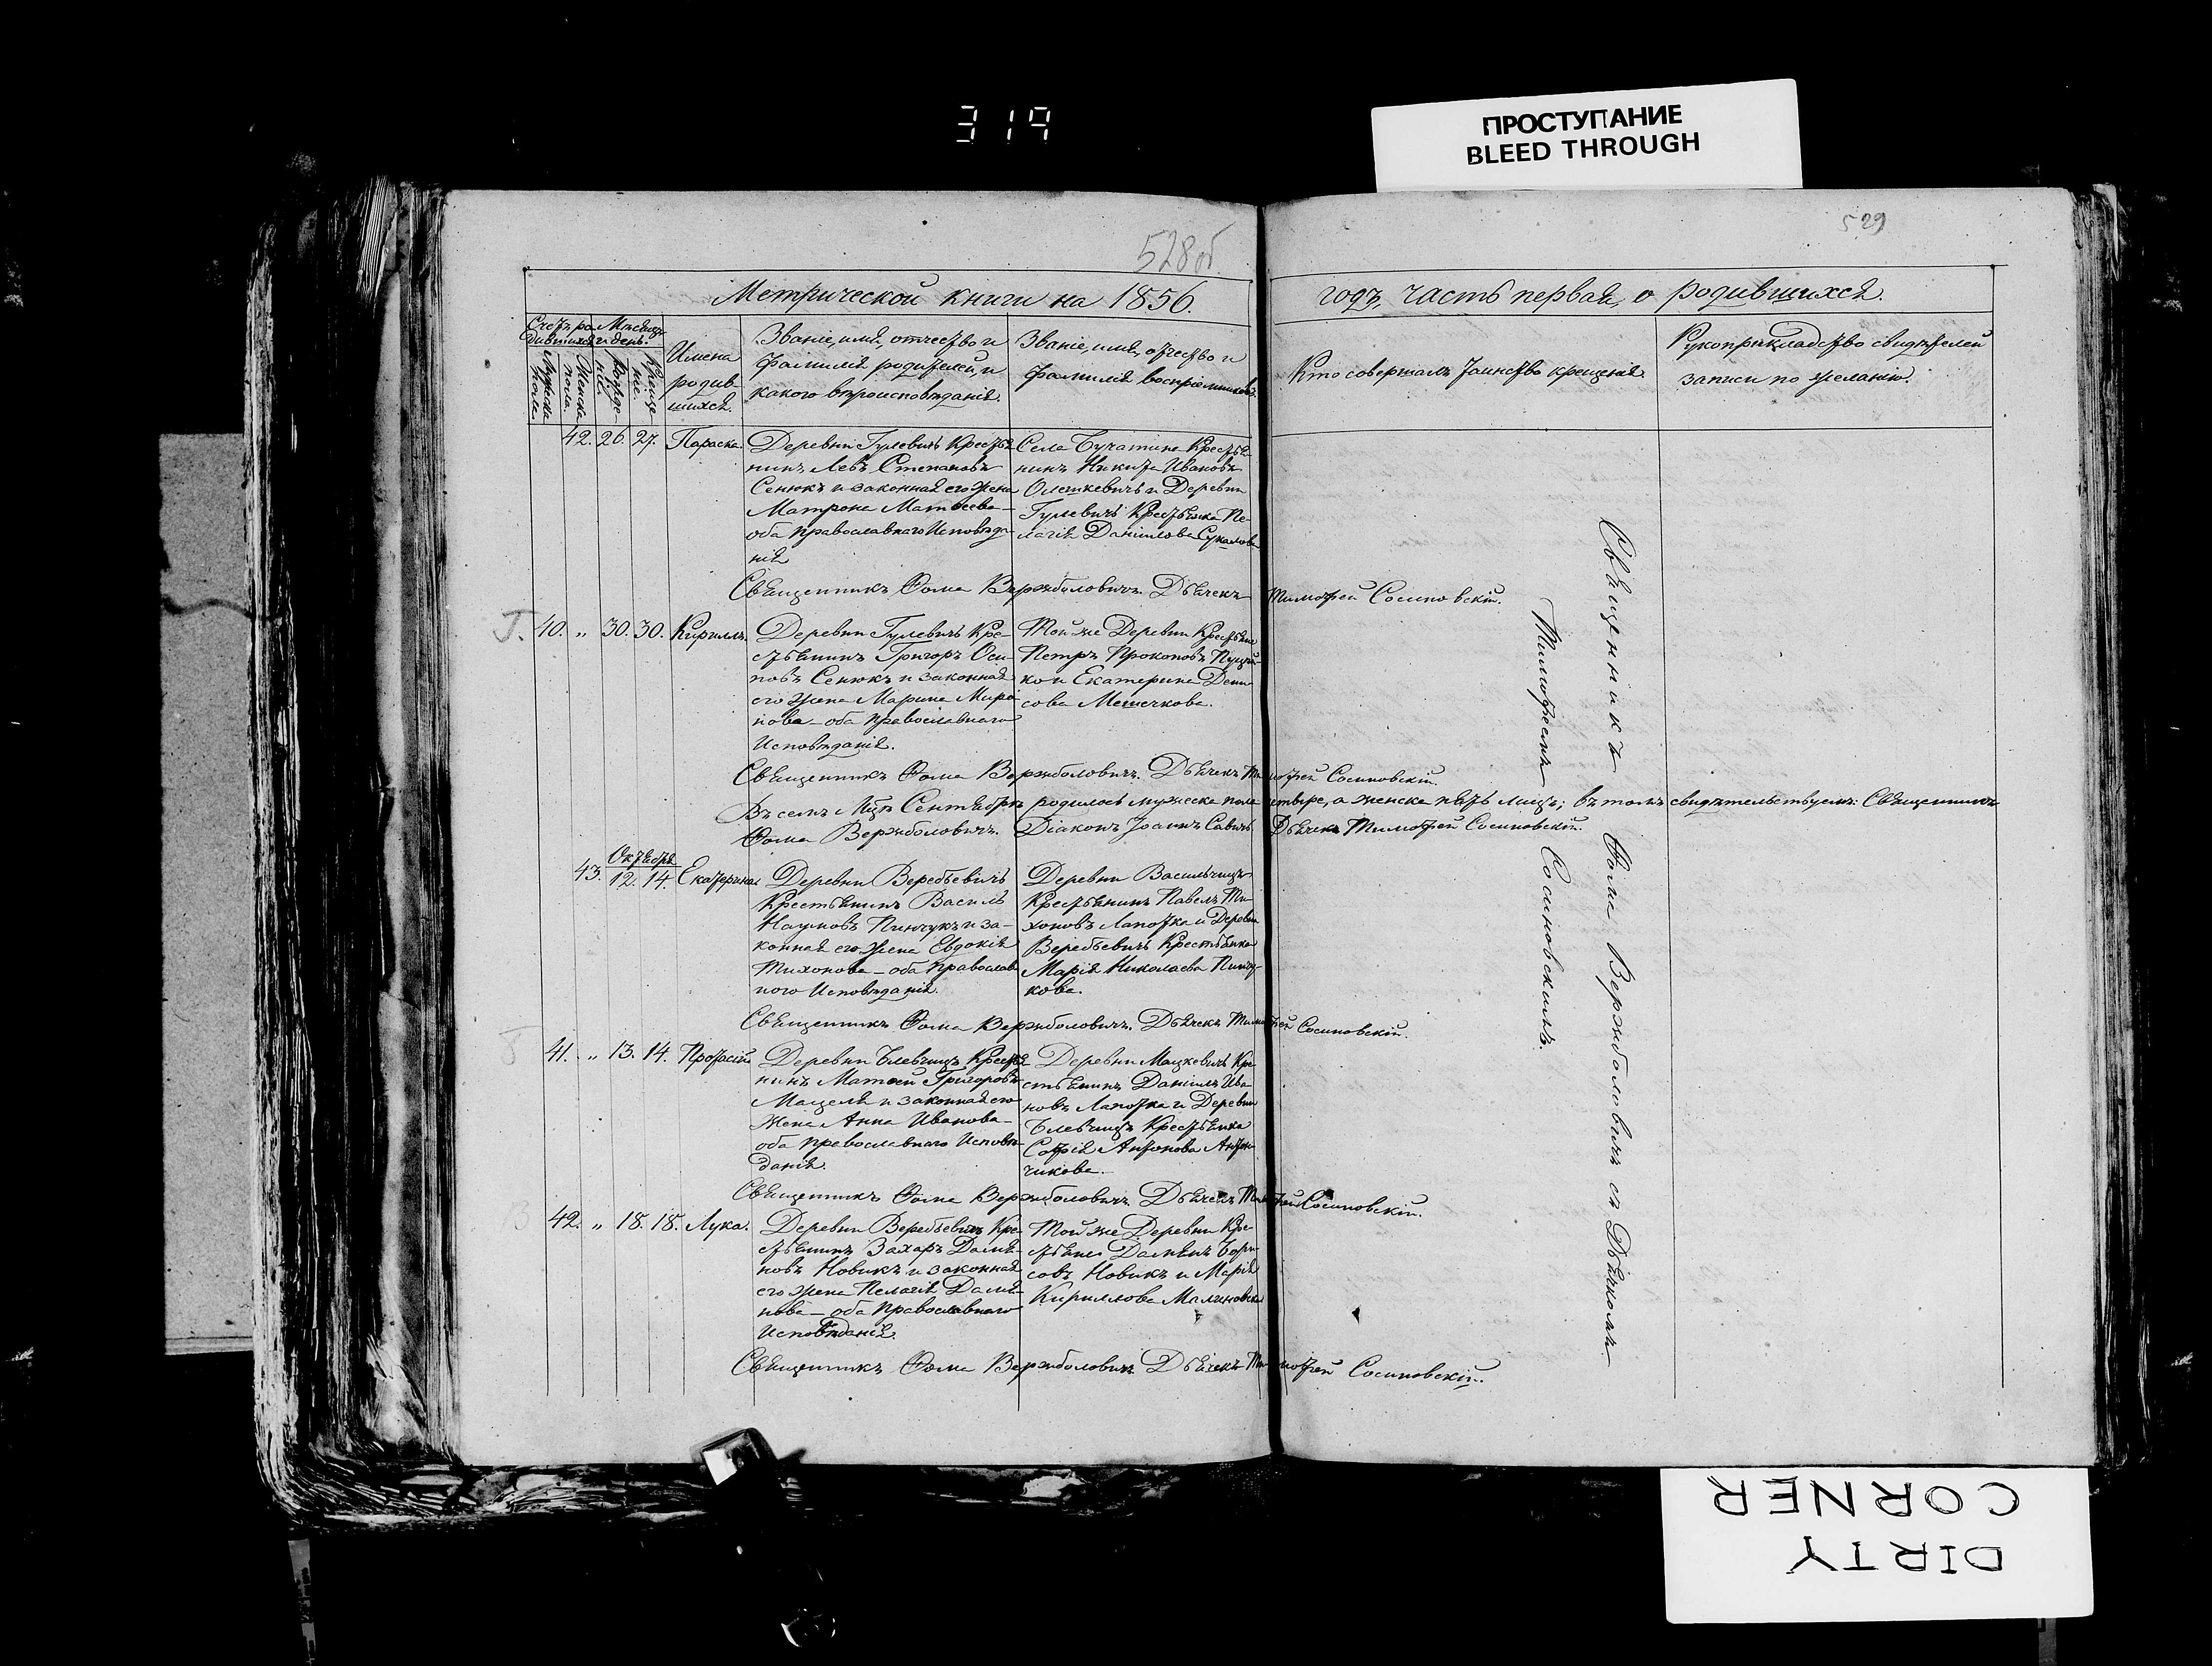 319
ПРОСТУПАНИЕ
BLEED THROUGH
528об
529
Метрической книги на 1856.
годъ, часть первая, о родившихся.
Счетъ ро-
дившихся
Мѣсяцъ
и день.
Мужеска
пола
Женска
пола.
Рожде-
нія
Креще-
нія.
Имена
родив-
шихся.
Званіе, имя, отчество и
фамилія родителей, и
какого вѣроисповѣданія.
Званіе, имя, отчество и
фамилія воспріемниковъ.
Кто совершалъ таинство крещенія.
Рукоприкладство свидѣтелей
записи по желанію.
42. 26. 27. Параска.
Деревни Гулевичъ Крестья-
нинъ Левъ Степановъ
Сенюкъ и законная его жена
Матрона Матѳеева-
оба православнаго Исповѣда-
нія
Села Бучатина Крестья-
нинъ Никита Ивановъ
Олешкевичъ и Деревни
Гулевичъ Крестьянка Пе-
лагія Даніилова
Священникъ Ѳома Вержболовичъ. Дьячекъ Тимофей Сосиновскій.
40. „ 30. 30. Кириллъ.
Деревни Гулевичъ Кре-
стьянинъ Григоръ Оси-
повъ Сенюкъ и законная
его жена Марина Миро-
нова - оба православнаго
Исповѣданія.
Той же Деревни Крестьяне
Петръ Прокоповъ
ко и Екатерина Дени-
сова Мешечкова.
Священникъ Ѳома Вержболовичъ. Дьячекъ Тимофей Сосиновскій.
Въ семъ Мцѣ Сентябрѣ родилось мужеска пола четыре, а женска пять лицъ; въ томъ свидѣтельствуемъ: Священникъ
Ѳома Вержболовичъ. Діаконъ Іоаннъ Савичъ. Дьячекъ Тимофей Сосиновскій.
Октября
43. 12. 14. Екатерина
Деревни Веребьевичъ
Крестьянинъ Василь
Наумовъ Пинчукъ и за-
конная его жена Евдокія
Тихонова - оба православ-
ного Исповѣданія.
Деревни Васильчицъ
Крестьянинъ Павелъ Ти-
хоновъ Лапотка и Деревни
Веребьевичъ Крестьянка
Марія Николаева Пинчу-
кова.
Священникъ Ѳома Вержболовичъ. Дьячекъ Тимофей Сосиновскій.
41. „ 13. 14. Протасій
Деревни Блевчицъ Крестья-
нинъ Матѳей Григоровъ
Мацеля и законная его
Жена Анна Иванова-
оба православнаго Исповѣ-
данія.
Деревни Мацкевичъ Кре-
стьянинъ Даніилъ Ива-
новъ Лапотка и Деревни
Блевчицъ Крестьянка
Софія Антонова Антон-
чикова.
Священникъ Ѳома Вержболовичъ. Дьячекъ Тимофей Сосиновскій.
42. „ 18. 18. Лука.
Деревни Веребьевичъ Кре-
стьянинъ Захаръ Дамья-
новъ Новикъ и законная
его жена Пелагія Дамья-
нова - оба Православнаго
Исповѣданія.
Той же Деревни Кре-
стьяне Дамьянъ Бори-
совъ Новикъ и Марія
Кириллова Малиновска
Священникъ Ѳома Вержболовичъ Дьячекъ Тимофей Сосиновскій.
Священникъ Ѳома Вержболовичъ съ Дьячкомъ
Тимофеемъ Сосиновскимъ.
DIRTY
CORNER